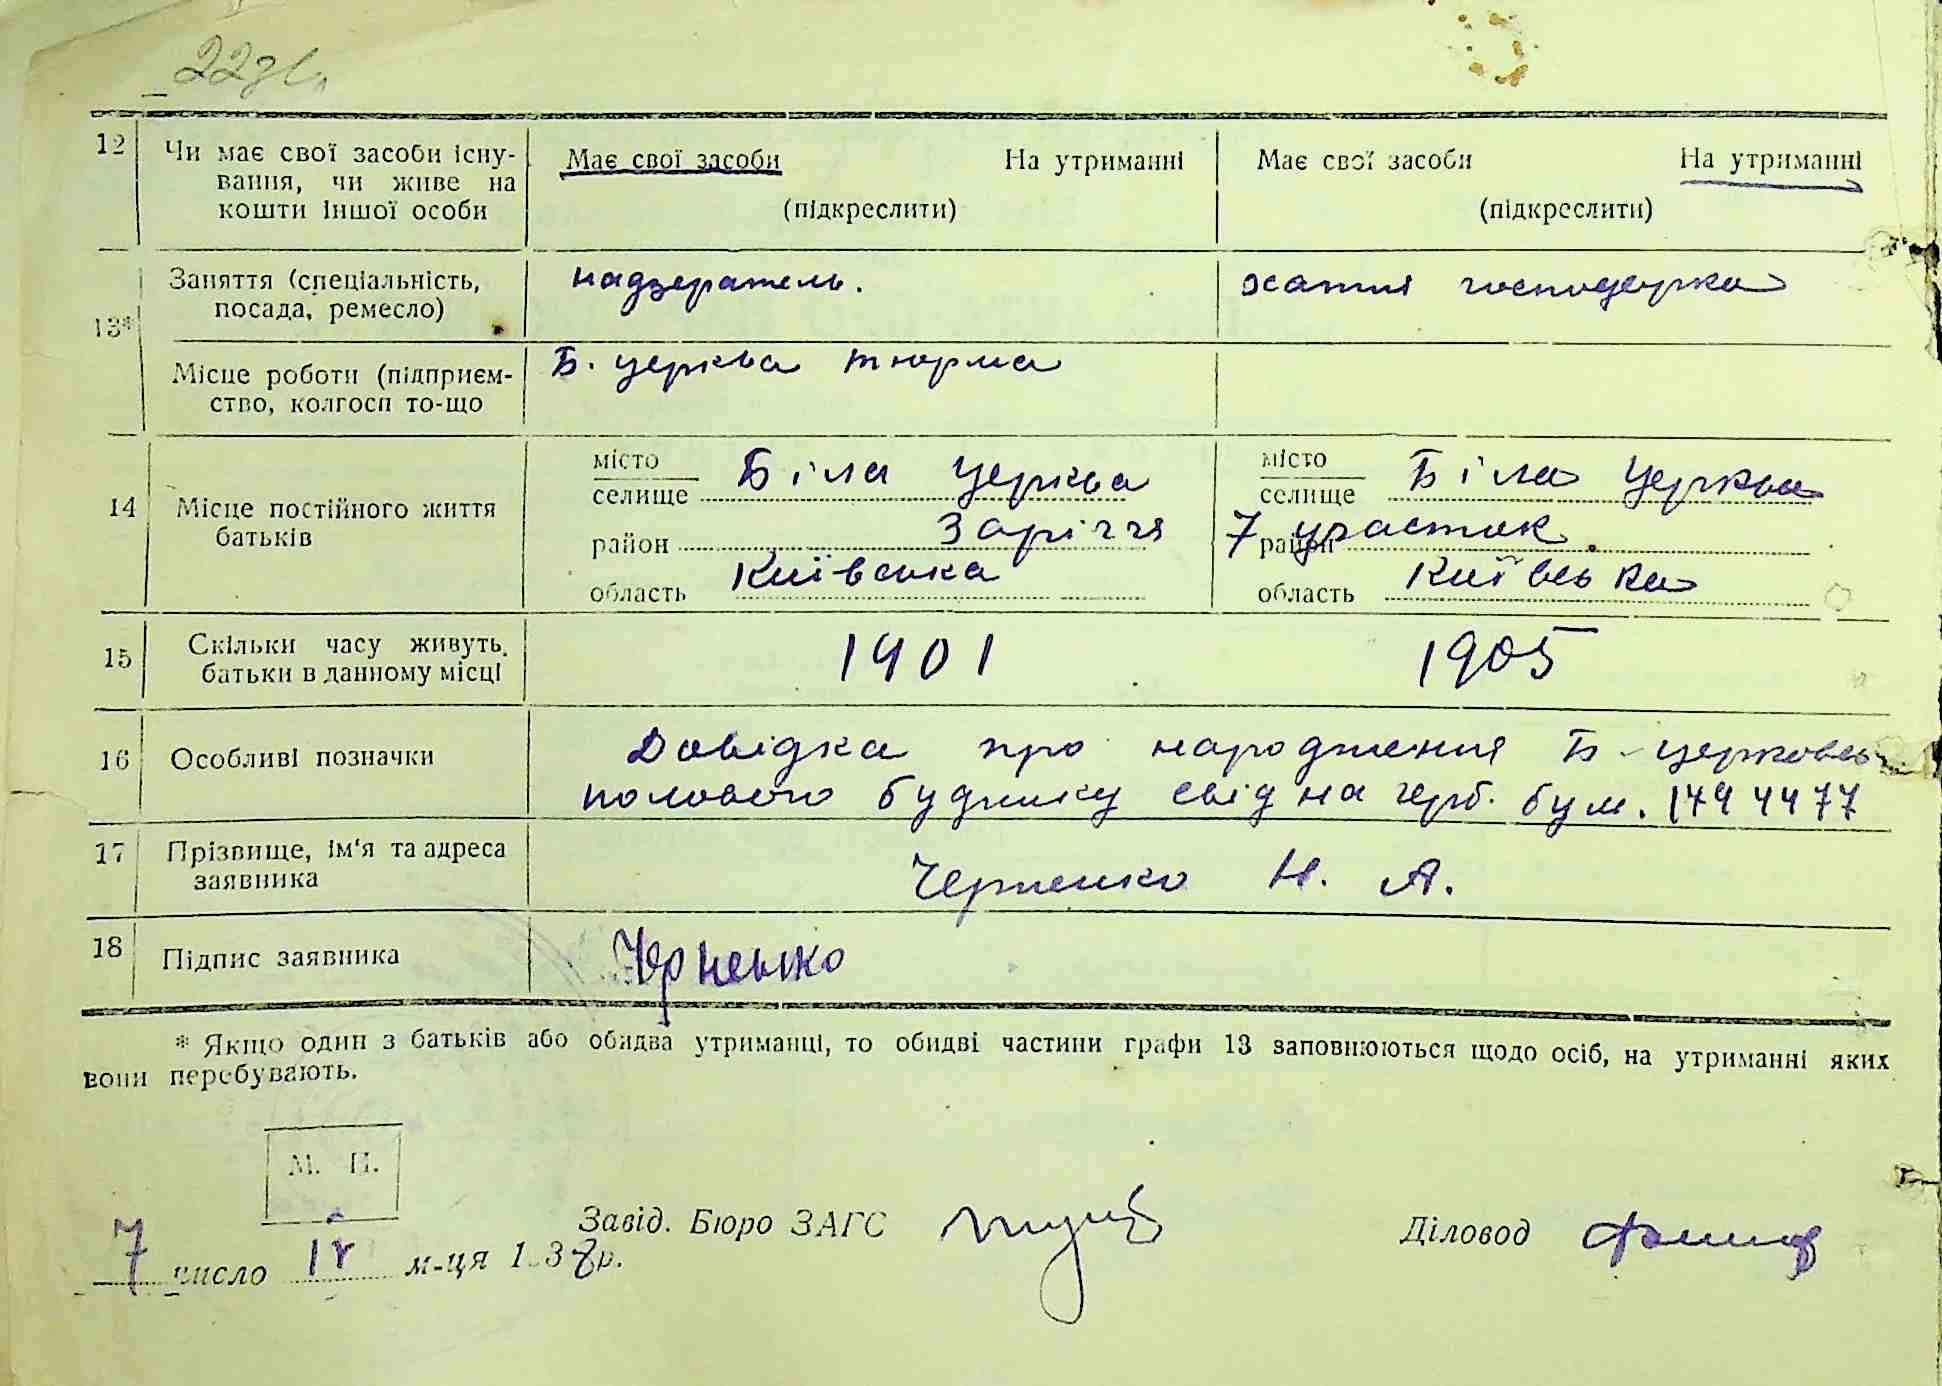 12
Чи має свої засоби існу-
вання, чи живе на
кошти іншої особи
Має свої засоби На утриманні
(підкреслити)
Має свої засоби На утриманні
(підкреслити)
13*
Заняття (спеціальність,
посада, ремесло)
надзератель.
хатня господарка
Місце роботи (підприєм-
ство, колгосп то-що
Б. церква тюрма
14
Місце постійного життя
батьків
місто
селище Біла Церква
район Заріччя
область Київська
місто
селище Біла Церква
район 7 участок
область Київська
15
Скільки часу живуть
батьки в данному місці
1901
1905
16
Особливі позначки
Довідка про народження Б-церковсь
полового будинку свід на герб. бум. 1794477
17
Прізвище, ім'я та адреса
заявника
Черненко Н. А.
18
Підпис заявника
Черненко
* Якщо один з батьків або обидва утриманці, то обидві частини графи 13 заповнюються щодо осіб, на утриманні яких
вони перебувають.
М. П.
Завід. Бюро ЗАГС
Діловод
7 число IV м-ця 1938р.